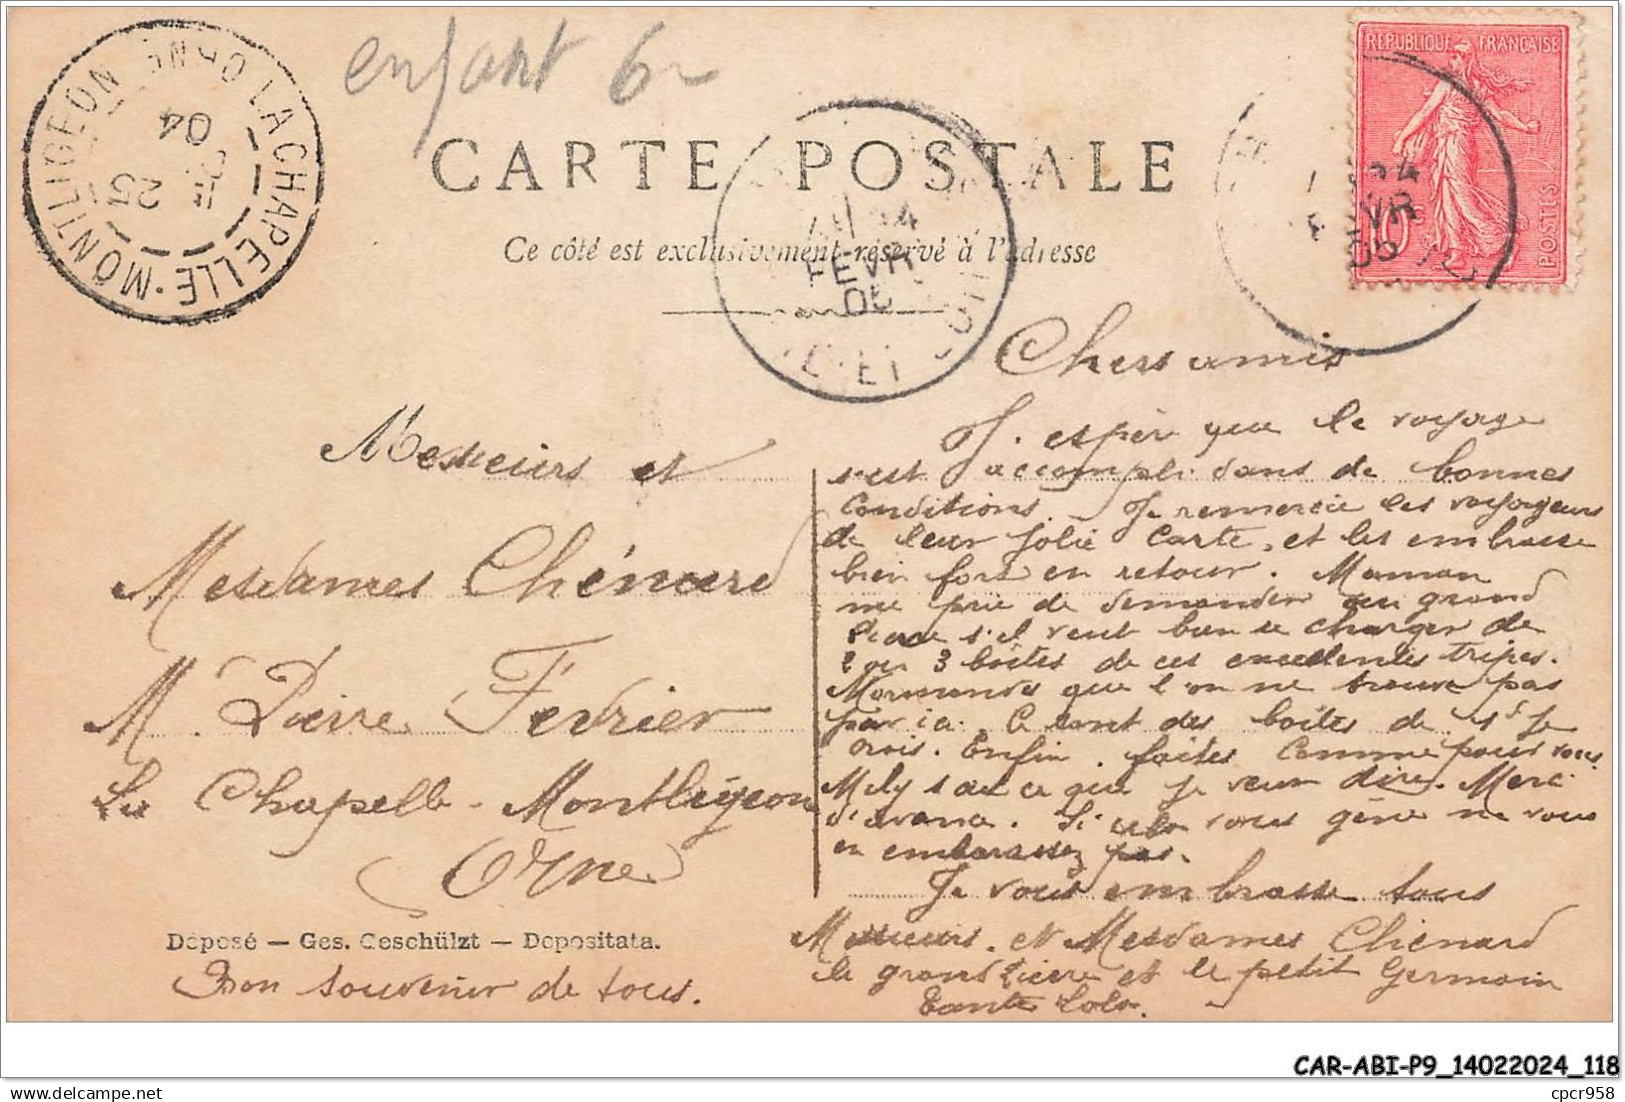 enfant 6
CARTE POSTALE
Ce côté est exclusivement réservé à l'adresse
LA CHAPELLE-MONTLIGEON ORNE
25
04
24
FEVR
05
REPUBLIQUE FRANÇAISE
POSTES
10
Chers amis
J'espèr que le voyage
s'est accompli dans de bonnes
conditions. Je remercie les voyageurs
de leur jolie carte, et les embrasse
bien fort en retour. Maman
me prie de demander au grand
Pierre s'il veut bien se charger de
2 ou 3 boîtes de ces excellentes tripes
Normandes que l'on ne trouve pas
par ici. Ce sont des boîtes de 1s Je
crois. Enfin, faites comme pour vous
Mély sait ce que je veux dire. Merci
d'avance. Si cela vous gêne ne vous
en embarassez pas.
Je vous embrasse tous
Messieurs et Mesdames Chénard
le grand Pierre et le petit Germain
Tante Lolo.
Messieurs et
Mesdames Chénard
M. Pierre Février
La Chapelle-Montligeon
Orne
Déposé — Ges. Geschülzt — Depositata.
Bon souvenir de tous.
CAR-ABI-P9_14022024_118
cpcr958